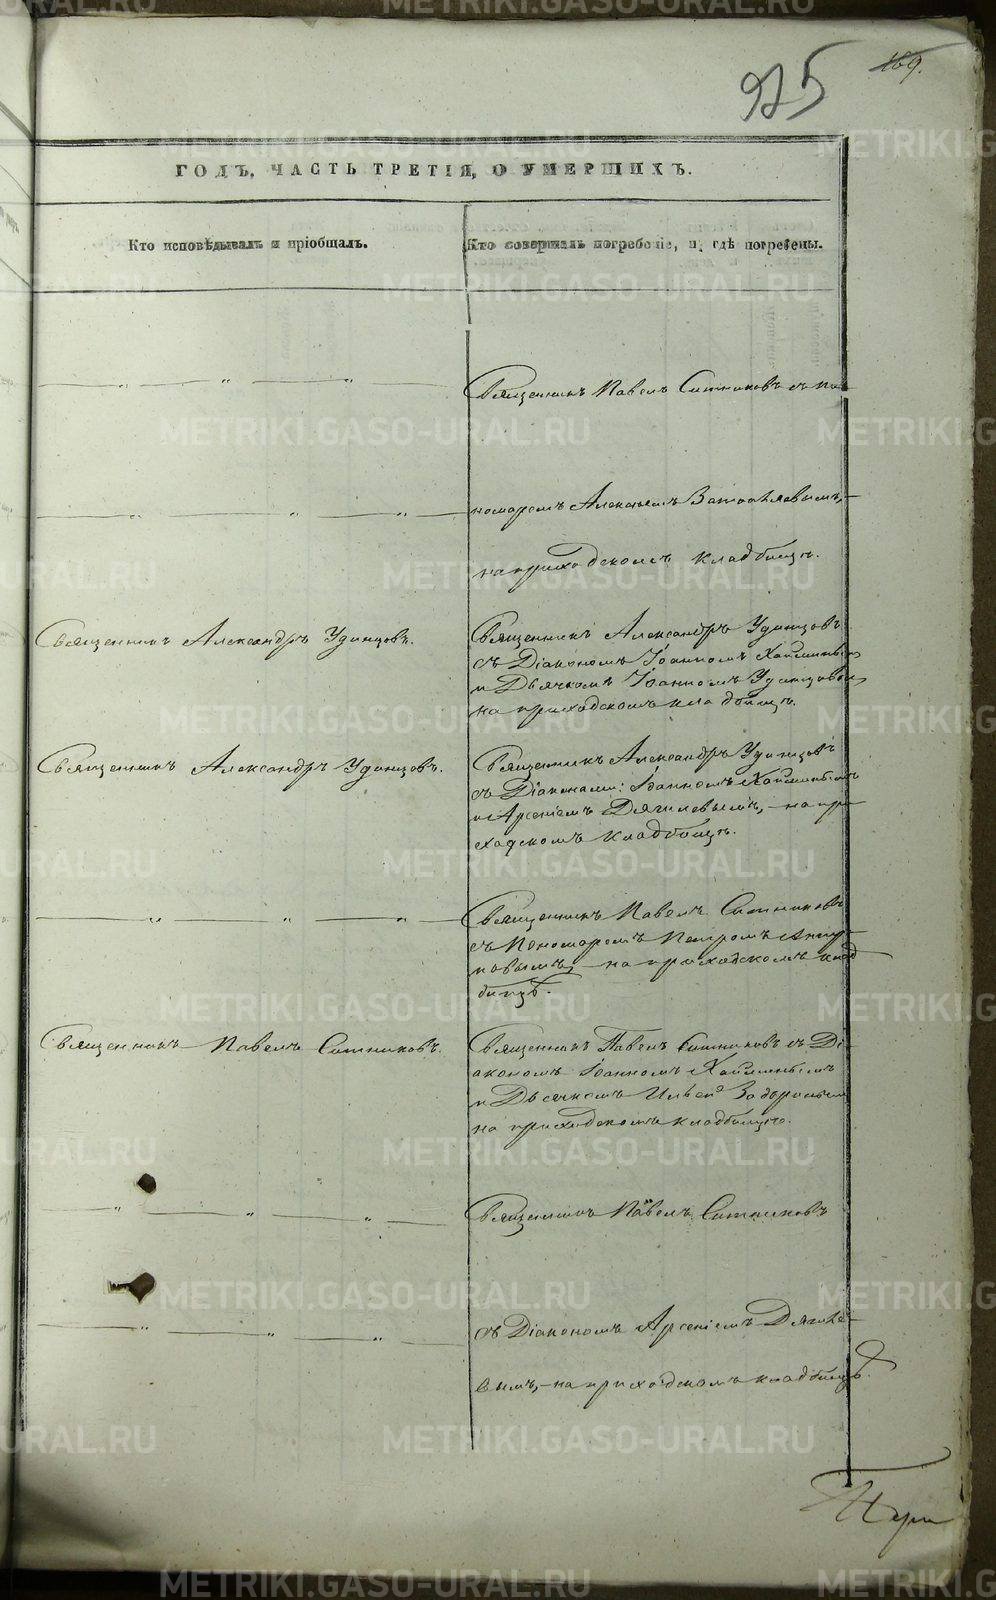 925
169.
ГОДЪ, ЧАСТЬ ТРЕТІЯ, О УМЕРШИХЪ.
Кто исповѣдывалъ и пріобщалъ.
Кто совершалъ погребеніе, и гдѣ погребены.
— „ — „ — „ —
Священникъ Павелъ Ситниковъ съ по-
— „ — „ — „ —
номаремъ Алексѣемъ
на приходскомъ кладбищѣ.
Священникъ Александръ Удинцовъ.
Священникъ Александръ Удинцовъ
съ Діакономъ Іоанномъ Хайминымъ
и Дьячкомъ Іоанномъ Удинцовым
на приходскомъ кладбищѣ.
Священникъ Александръ Удинцовъ.
Священникъ Александръ Удинцовъ
съ Діаконами: Іоанномъ Хайминымъ
и Арсеніемъ Дягилевымъ, – на при-
ходскомъ кладбищѣ.
— „ — „ — „ —
Священникъ Павелъ Ситниковъ
съ Пономаремъ Петромъ
новымъ, – на приходскомъ клад
бищѣ.
Священникъ Павелъ Ситниковъ.
Священникъ Павелъ Ситниковъ съ Ді-
акономъ Іоанномъ Хайминымъ
и Дьячкомъ Ильею
на приходскомъ кладбищѣ.
— „ — „ — „ —
Священникъ Павелъ Ситниковъ
— „ — „ — „ —
съ Діакономъ Арсеніемъ Дягиле-
вымъ, – на приходскомъ кладбищѣ.
METRIKI.GASO-URAL.RU